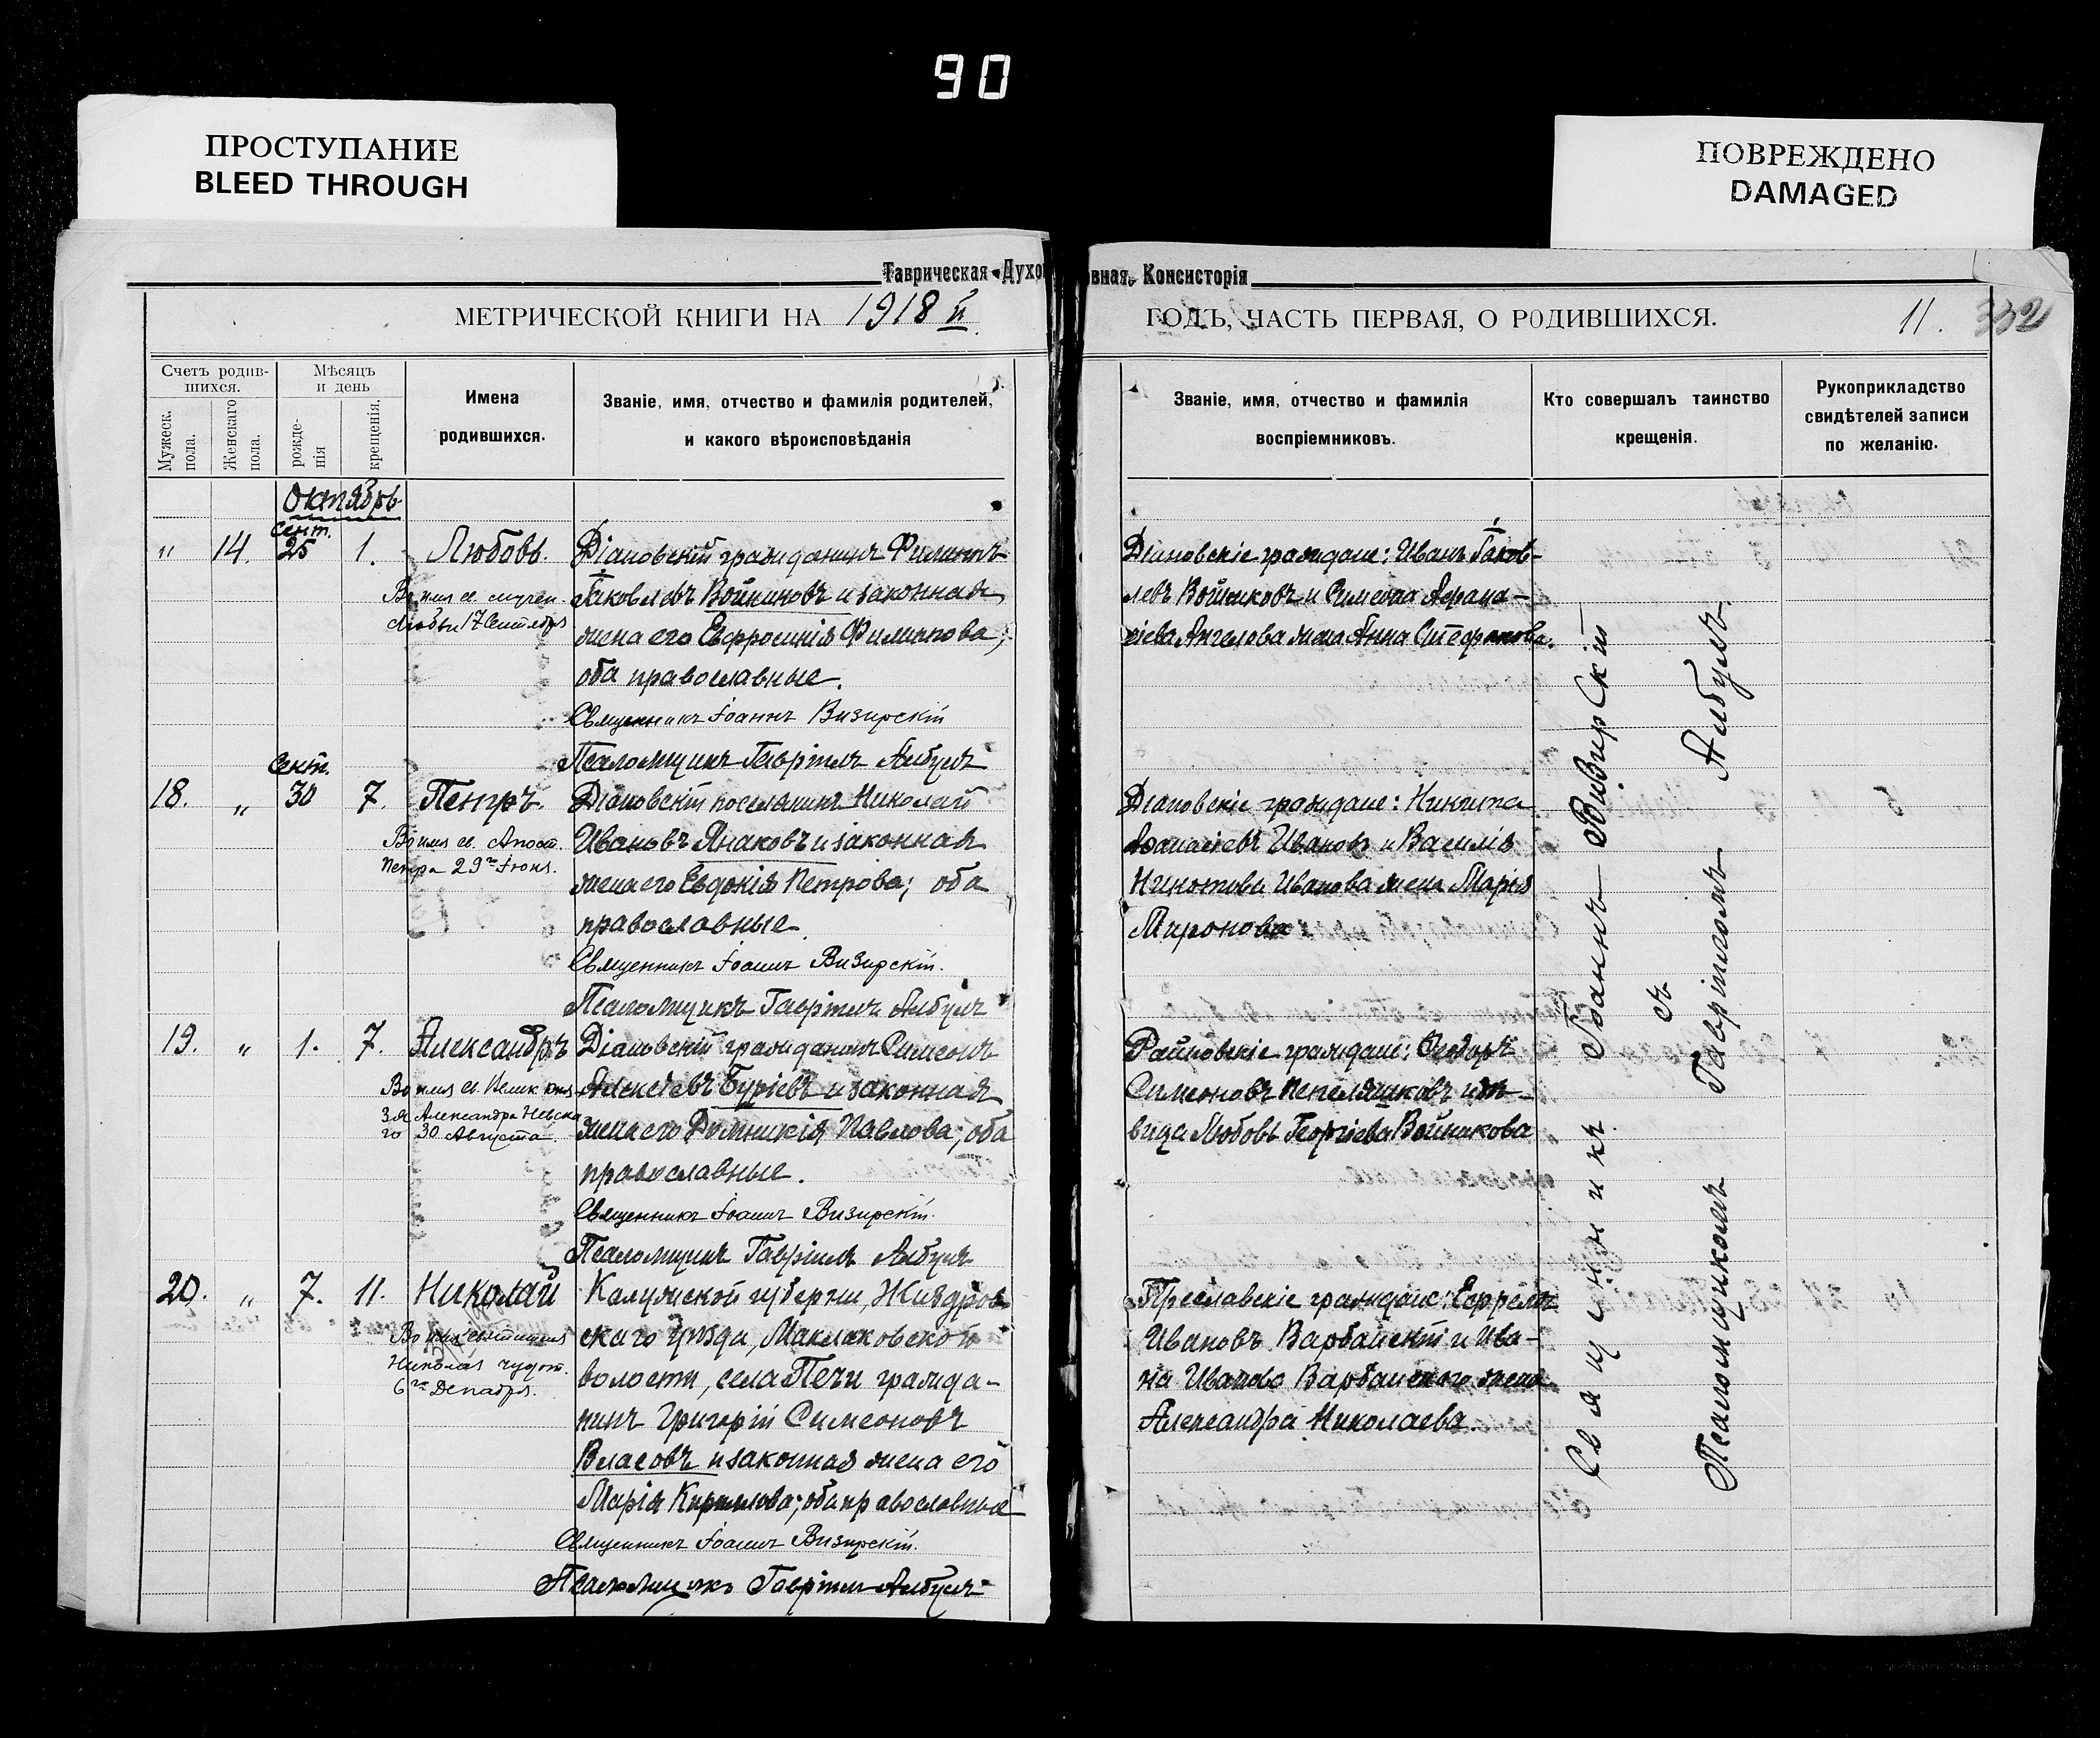 90
ПРОСТУПАНИЕ
BLEED THROUGH
ПОВРЕЖДЕНО
DAMAGED
Таврическая Духовная Консисторія
МЕТРИЧЕСКОЙ КНИГИ НА 1918 й
ГОДЪ, ЧАСТЬ ПЕРВАЯ, О РОДИВШИХСЯ.
11.
332
Счетъ родив-
шихся.
Мужеск.
пола.
Женскаго
пола.
Мѣсяцъ
и день
рожде-
нія
крещенія.
Имена
родившихся.
Званіе, имя, отчество и фамилія родителей,
и какого вѣроисповѣданія
Званіе, имя, отчество и фамилія
воспріемниковъ.
Кто совершалъ таинство
крещенія.
Рукоприкладство
свидѣтелей записи
по желанію.
Октябрь
сент.
" 14. 25 1. Любовь.
Во имя св. мучен.
Любви 17 Сентября
Діановскій гражданинъ Филиппъ
Іаковлевъ Войниковъ и законная
жена его Евфросинія Филиппова;
оба православные.
Священникъ Іоаннъ Визирскій
Псаломщикъ Гавріилъ Албулъ
Діановскіе граждане: Иванъ Іаков-
левъ Войниковъ и Симеона Афана-
сіева Ангелова жена Анна Стефанова.
Сент.
18. " 30 7. Петръ.
Во имя св. Апост.
Петра 29го Іюня.
Діановскій поселянинъ Николай
Ивановъ Янаковъ и законная
жена его Евдокія Петрова; оба
православные.
Священникъ Іоаннъ Визирскій.
Псаломщикъ Гавріилъ Албулъ
Діановскіе граждане: Никита
Афанасіевъ Ивановъ и Василія
Ивanова жена Марія
Миронова.
19. " 1. 7. Александръ
Во имя св. Велик. кня
зя Александра Невска
го 30 Августа.
Діановскій гражданинъ Симеонъ
Алексѣевъ Буріевъ и законная
жена его Домникія Павлова; оба
православные.
Священникъ Іоаннъ Визирскій.
Псаломщикъ Гавріилъ Албулъ
Райновскіе граждане: Ѳеодоръ
Симеоновъ Пепеляшковъ и дѣ-
вица Любовь Георгіева Войникова
20. " 7. 11. Николай
Во имя святителя
Николая чудот.
6го Декабря.
Калужской губерніи, Жиздров
скаго уѣзда, Маклаковской
волости, села Печи гражда-
нинъ Григорій Симеоновъ
Власовъ и законная жена его
Марія Кириллова; оба православные
Священникъ Іоаннъ Визирскій.
Псаломщикъ Гавріилъ Албулъ
Преславскіе граждане: Ефремъ
Ивановъ Варбанскій и Ива-
на Иванова Варбанскаго жена
Александра Николаева.
Священникъ Іоаннъ Визирскій
съ
Псаломщикомъ Гавріиломъ Албулъ